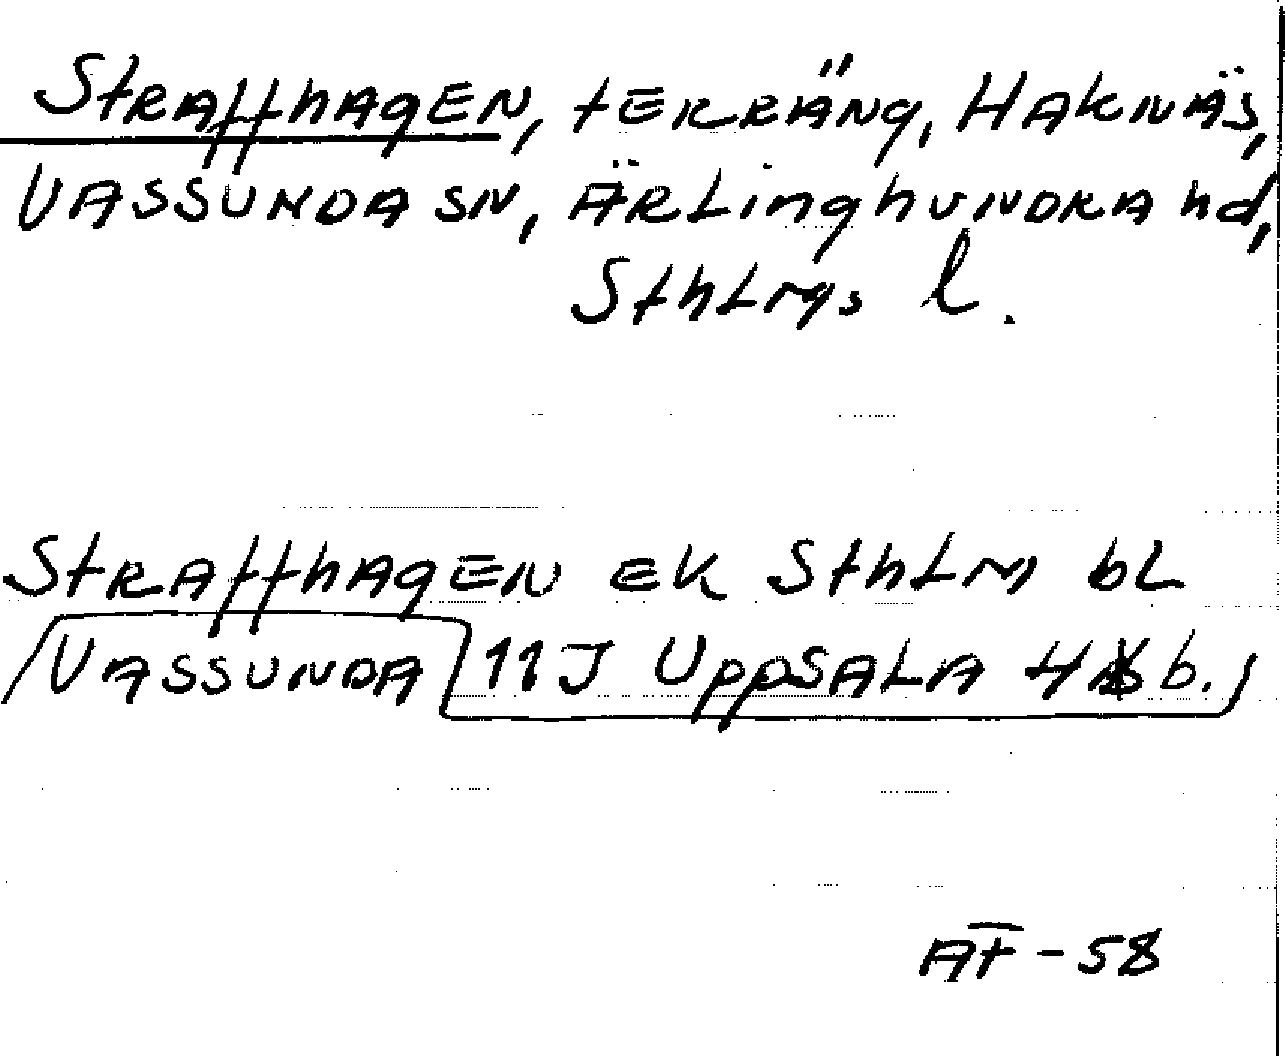 Straffhagen, terräng, Haknäs,
Vassunda sn, Ärlinghundra hd,
Sthlms l.
Straffhagen ek Sthlm bl
Vassunda 11J Uppsala 4 b.
AT-58